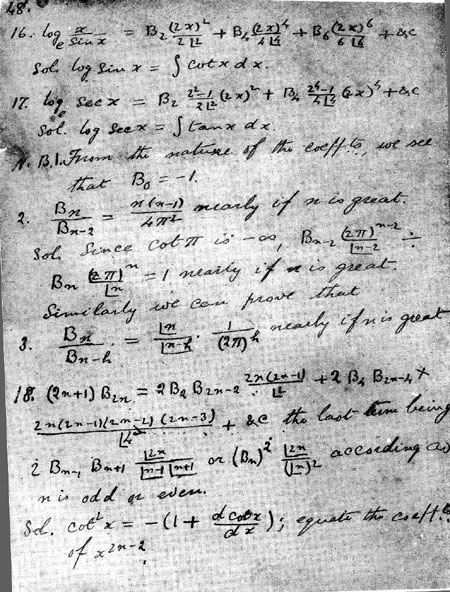 48.
16. log_e x/sin x = B₂ (2x)²/2|2 + B₄ (2x)⁴/4|4 + B₆ (2x)⁶/6|6 + &c
Sol. log sin x = ∫ cot x dx.
17. log_e sec x = B₂ (2²-1)/2|2 (2x)² + B₄ (2⁴-1)/4|4 (2x)⁴ + &c
Sol. log sec x = ∫ tan x dx.
N.B.1. From the nature of the coeffts, we see
that B₀ = -1.
2. Bₙ/Bₙ₋₂ = n(n-1)/4π² nearly if n is great.
Sol. Since cot π is -∞, Bₙ₋₂ (2π)ⁿ⁻²/|n-2 ÷
Bₙ (2π)ⁿ/|n = 1 nearly if n is great.
Similarly we can prove that
3. Bₙ/Bₙ₋ₕ = |n/|n-h · 1/(2π)ʰ nearly if n is great
18. (2n+1) B₂ₙ = 2B₂ B₂ₙ₋₂ 2n(2n-1)/|2 + 2B₄ B₂ₙ₋₄ ×
2n(2n-1)(2n-2)(2n-3)/|4 + &c the last term being
2 Bₙ₋₁ Bₙ₊₁ |2n/|n-1 |n+1 or (Bₙ)² |2n/(|n)² according as
n is odd or even.
Sol. cot² x = -(1 + d cot x/dx); equate the coeffts.
of x²ⁿ⁻²